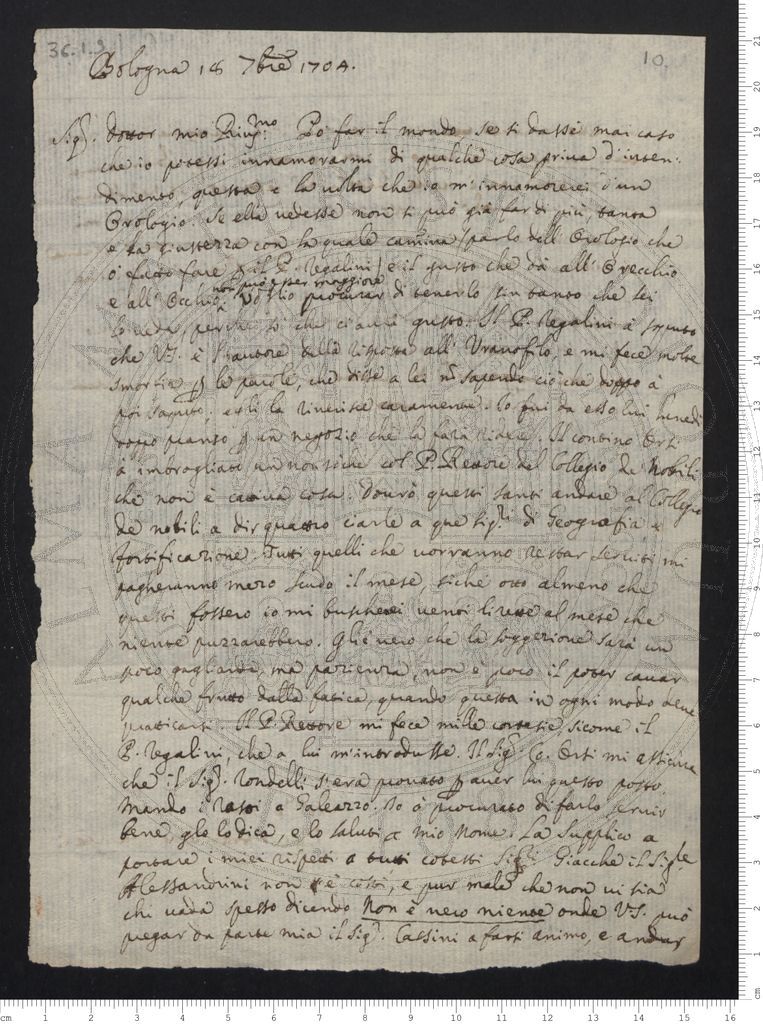 36.1.9.
10.
Bologna 18 7bre 1704.
Sigr. dottor mio Rivmo: Pò far il mondo se si dasse mai caso
che io potessi innamorarmi di qualche cosa priva d'inten:
dimento, questa è la volta che io m'innamorerei d'un
Orologio. Se ella vedesse non si può già far di più, tanta
è la giustezza con la quale camina (parlo dell'Orologio che
ò fatto fare p il P. Regalini) e il gusto che dà all'Orecchio
non può esser maggiore
e all'Occhio. Voglio procurar di tenerlo sin tanto che lei
lo veda, perche sò che ci avrà gusto. Il P. Regalini à saputo
che VS. è l'autore della risposta all'Uranofilo, e mi fece molte
smorfie p le parole, che disse a lei nō sapendo ciò che doppo à
poi saputo; egli la riverisce caramente. Io fui da esso lui
pranzo p un negozio che la farà ridere. Il contino Orsi
à imbrogliato un non sò che col P. Rettore del Collegio de Nobili
che non è cattiva cosa. Dovrò questi santi andare al Collegio
de nobili a dir quattro ciarle a que sigri di Geografia e
fortificazione. Tutti quelli che vorranno restar serviti mi
pagheranno mezo scudo il mese, siche otto almeno che
questi fossero io mi buscherei venti lirette al mese che
niente puzzarebbero. Gli è vero che la soggezione sarà un
poco gagliarda, ma pazienza, non è poco il poter cavar
qualche frutto dalla fatica, quando questa in ogni modo deve
pratticarsi. Il P. Rettore mi fece mille cortesie, sicome il
P. Regalini, che a lui m'introdusse. Il Sigr. Co. Orsi mi assicura
che il Sigr. Rondelli s'era provato p aver lui questo posto.
Mando i a Galeazzo. Io ò procurato di farlo servir
bene glelo dica, e lo saluti a mio nome. La supplico a
portare i miei rispetti a tutti cotesti Sigri: Giacche il Sigre
Alessandrini non è costì, e pur male che non vi sia
chi vada spesso dicendo Non è vero niente onde VS. può
pregar da parte mia il Sigr. Cassini a farsi animo, e andar